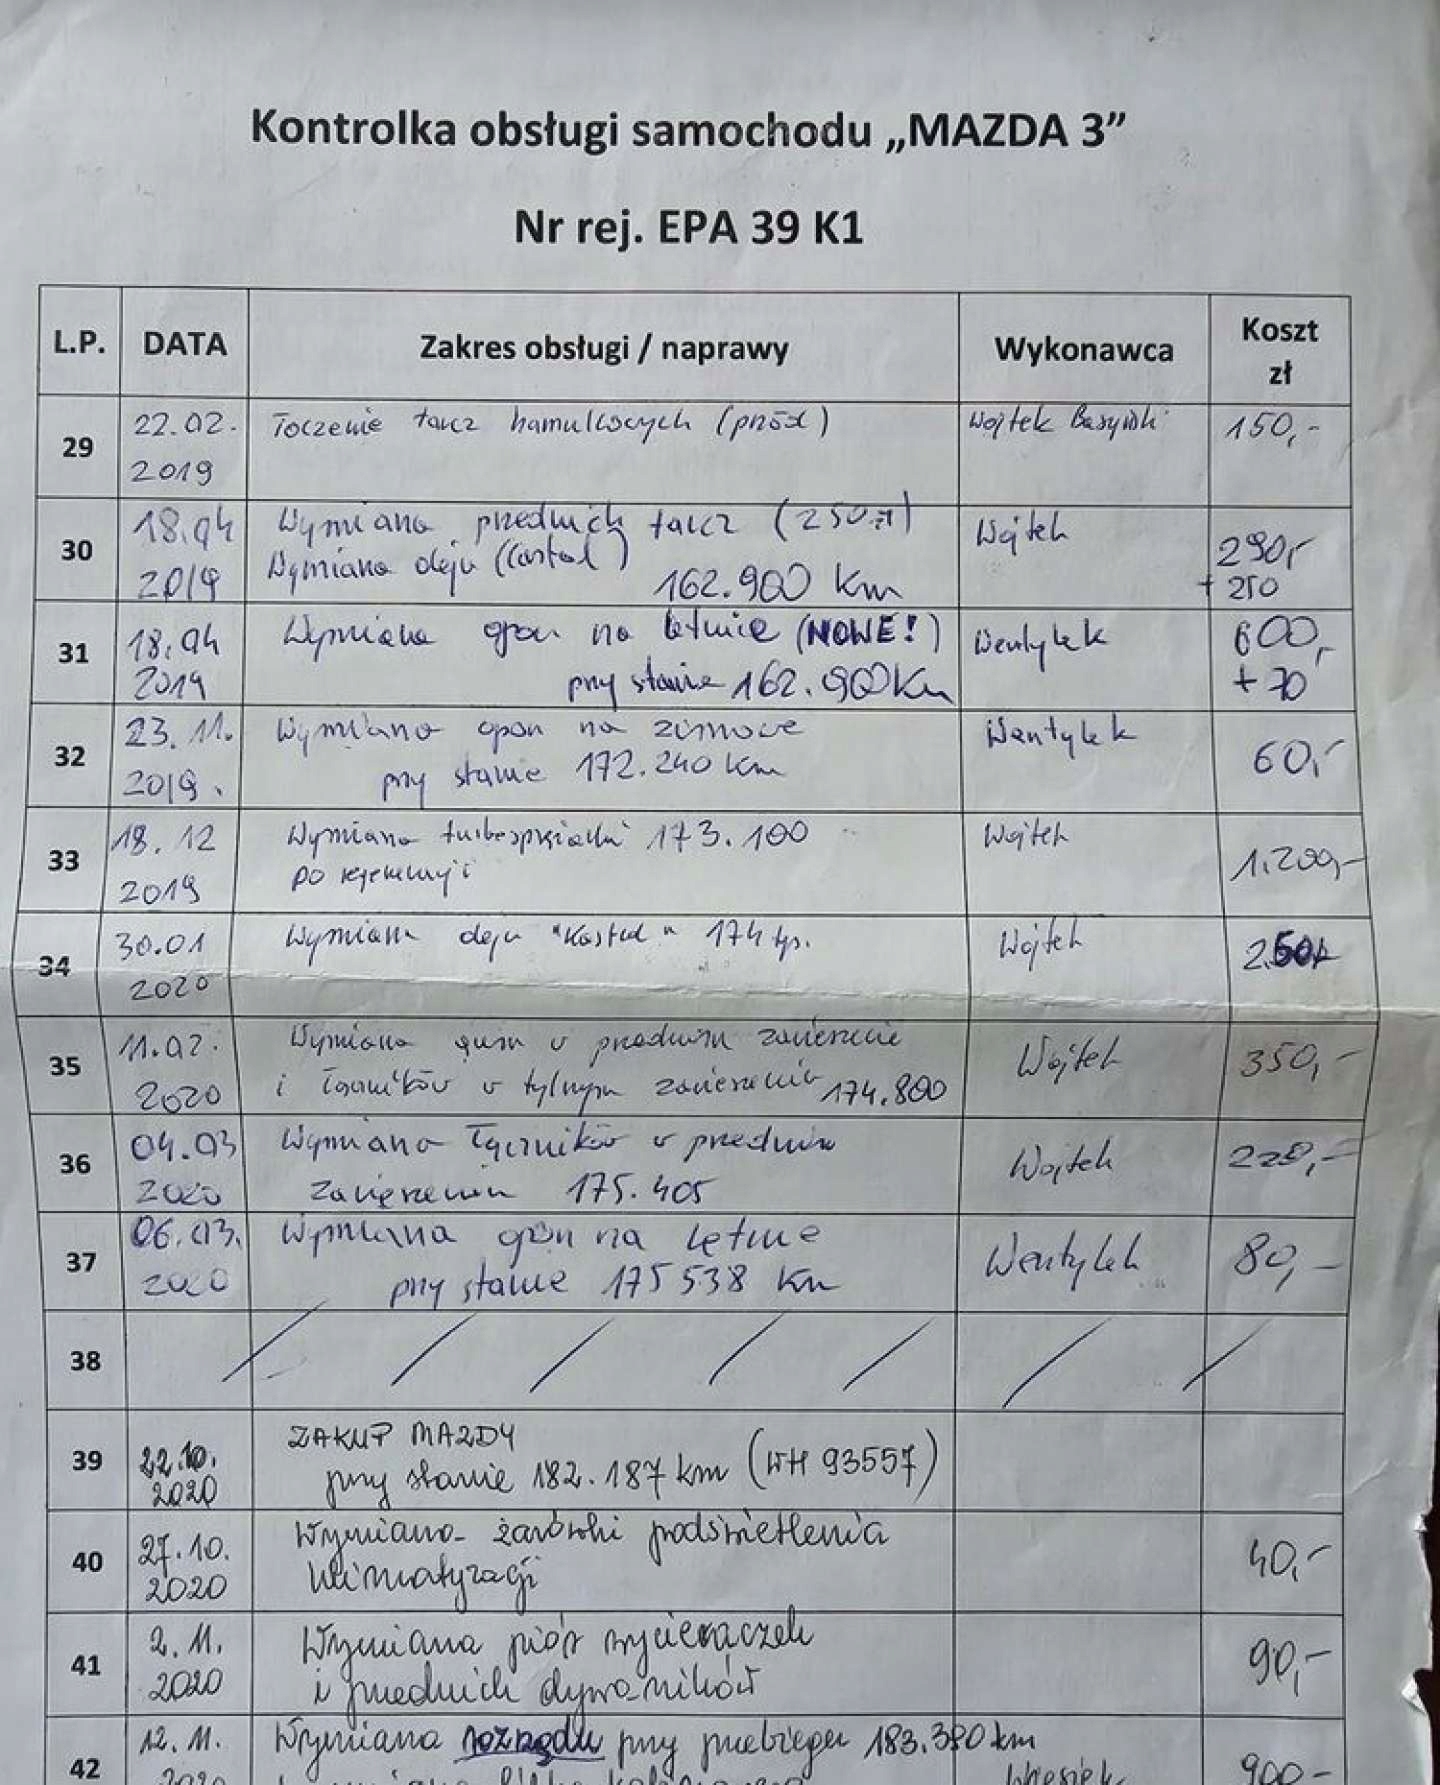 Kontrolka obsługi samochodu „MAZDA 3”
Nr rej. EPA 39 K1
L.P. DATA Zakres obsługi / naprawy Wykonawca Koszt zł
29 22.02.2019 Toczenie tarcz hamulcowych (przód) Wojtek 150,-
30 18.04 2019 Wymiana przednich tarcz (250zł) Wojtek 290,-
Wymiana oleju (Castrol) 162.900 km + 250
31 18.04 2019 Wymiana opon na letnie (NOWE!) Wentylek 600,-
przy stanie 162.900 Km + 70
32 23.11.2019. Wymiana opon na zimowe Wentylek 60,-
przy stanie 172.240 km
33 18.12 2019 Wymiana turbosprężarki 173.100 Wojtek 1.200,-
po regeneracji
34 30.01 2020 Wymiana oleju "Kastrol" 174 tys. Wojtek 250,-
35 11.02.2020 Wymiana gum w przednim zawieszenie Wojtek 350,-
i łączników w tylnym zawieszeniu 174.800
36 04.03 2020 Wymiana łączników w przednim Wojtek 220,-
zawieszeniu 175.405
37 06.03.2020 Wymiana opon na letnie Wentylek 80,-
przy stanie 175 538 Km
38 / / / / / / /
39 22.10.2020 ZAKUP MAZDY
przy stanie 182.187 km (WH 93557)
40 27.10.2020 Wymiana żarówki podświetlenia 40,-
klimatyzacji
41 2.11.2020 Wymiana piór wycieraczek 90,-
i przednich dywaników
42 12.11.2020 Wymiana rozrządu przy przebiegu 183.380 km Wiesiek 900,-